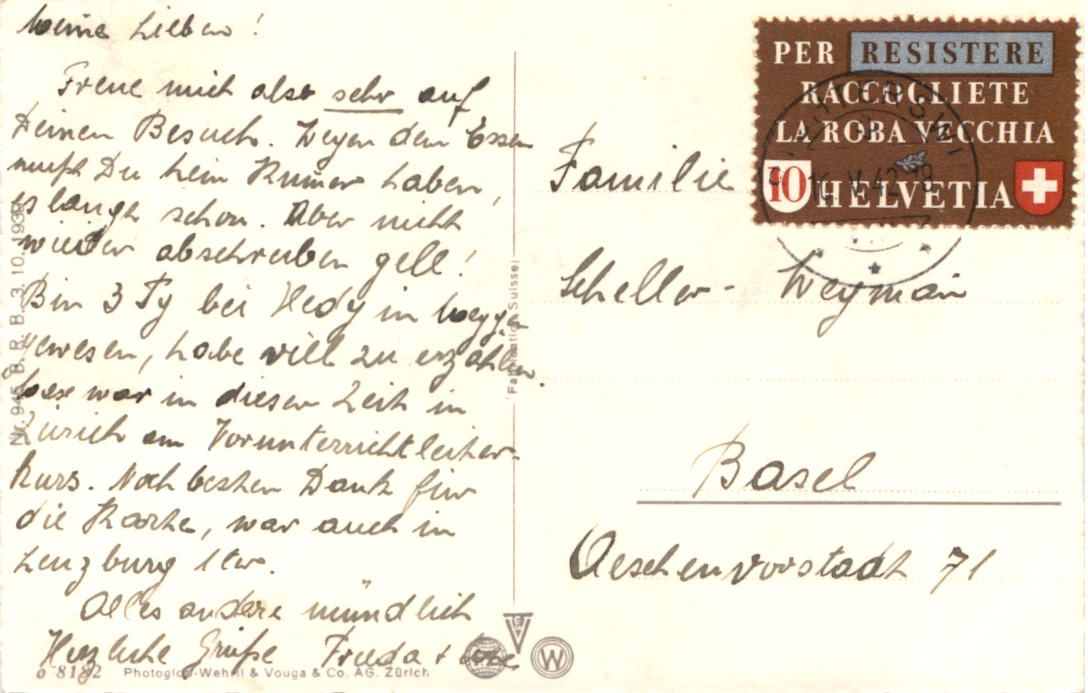 Meine Lieben!
Freue mich also sehr auf
Deinen Besuch. Wegen dem Essen
musst Du kein Kumer haben,
es langt schon. Aber nicht
wieder abschreiben gell!
Bin 3 Tg bei Hedy in Weggis
gewesen, habe viel zu erzählen.
war in dieser Zeit in
Zürich am Vorunterrichtleiter-
kurs. Noch besten Dank für
die Karte, war auch in
Lenzburg
Alles andere mündlich
Herzliche Grüsse Frieda +
Nr. 945 B. R. B. 3. 10. 1939
o 8182 Photoglob-Wehrli & Vouga & Co. AG. Zürich
(Fabrication Suisse)
PER RESISTERE
RACCOGLIETE
LA ROBA VECCHIA
10 HELVETIA
V. 42
W
Familie
Scheller-Weyman
Basel
Aeschenvorstadt 71